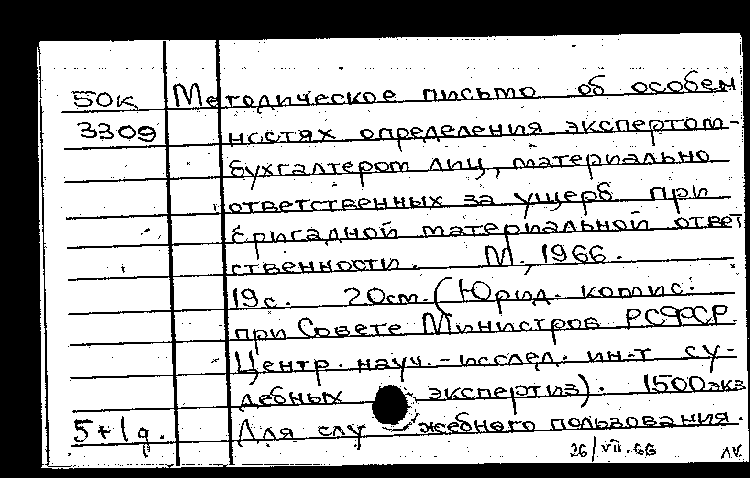 50к Методическое письмо об особен
3309 ностях определения экспертом-
бухгалтером лиц, материально
ответственных за ущерб при
бригадной материальной ответ
ственности. М., 1966.
19с. 20см. (Юрид. комис.
при Совете Министров РСФСР.
Центр. науч.-исслед. ин-т су-
дебных экспертиз). 1500экз
5+1д. Для служебного пользования.
26/VII-66 ЛК